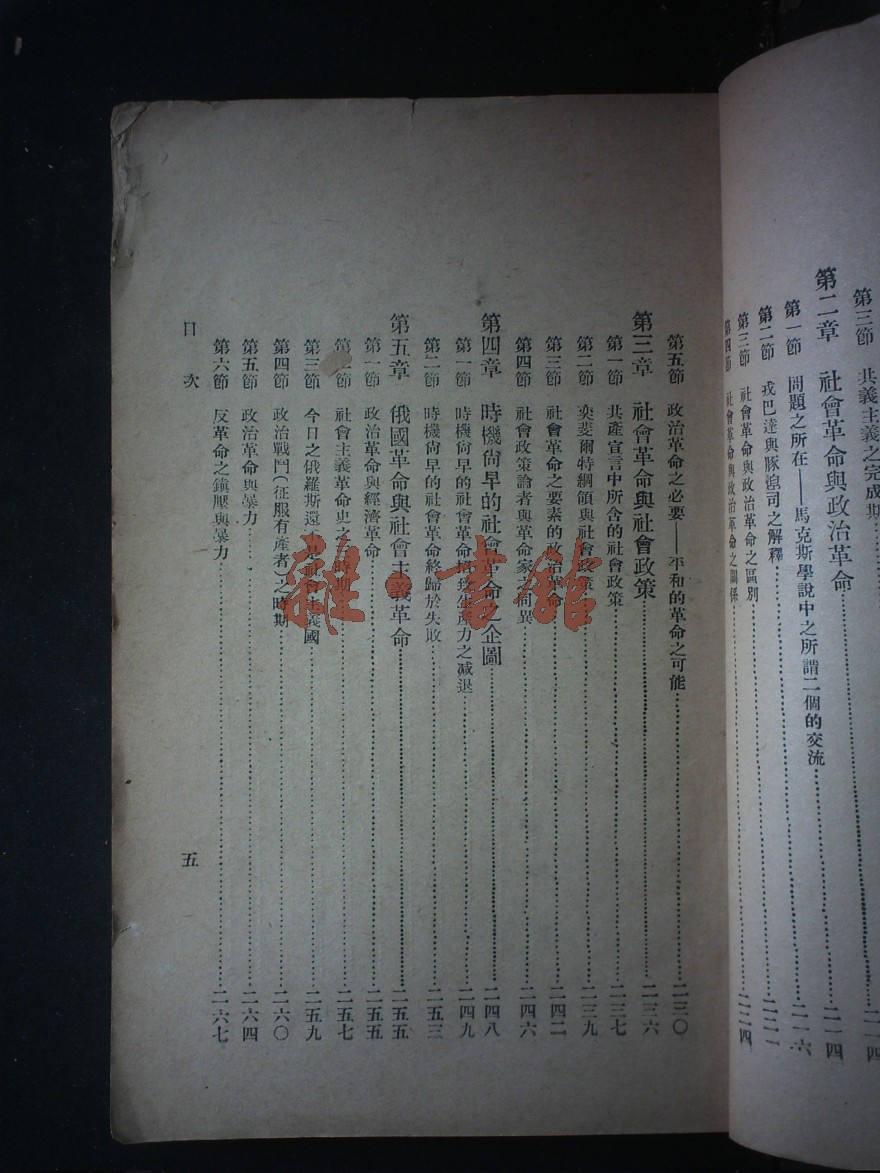 第三節 共義主義之完成期
第二章 社會革命與政治革命 二一四
第一節 問題之所在——馬克斯學說中之所謂二個的交流 二一六
第二節 戎巴達與豚湼司之解釋 二二一
第三節 社會革命與政治革命之區別 二二四
第四節 社會革命與政治革命之關係
第五節 政治革命之必要——平和的革命之可能 二三〇
第三章 社會革命與社會政策 二三六
第一節 共產宣言中所含的社會政策 二三七
第二節 奕斐爾特綱領與社會政策 二三九
第三節 社會革命之要素的政治革命 二四二
第四節 社會政策論者與革命家之同異 二四六
第四章 時機尚早的社會革命之企圖 二四八
第一節 時機尚早的社會革命 生產力之減退 二四九
第二節 時機尚早的社會革命終歸於失敗 二五三
第五章 俄國革命與社會主義革命 二五五
第一節 政治革命與經濟革命 二五五
第 節 社會主義革命史之 時期 二五七
第三節 今日之俄羅斯還 是社會主義國 二五九
第四節 政治戰鬥(征服有產者)之時期 二六〇
第五節 政治革命與暴力 二六四
第六節 反革命之鎮壓與暴力 二六七
目次
五
雜·書館